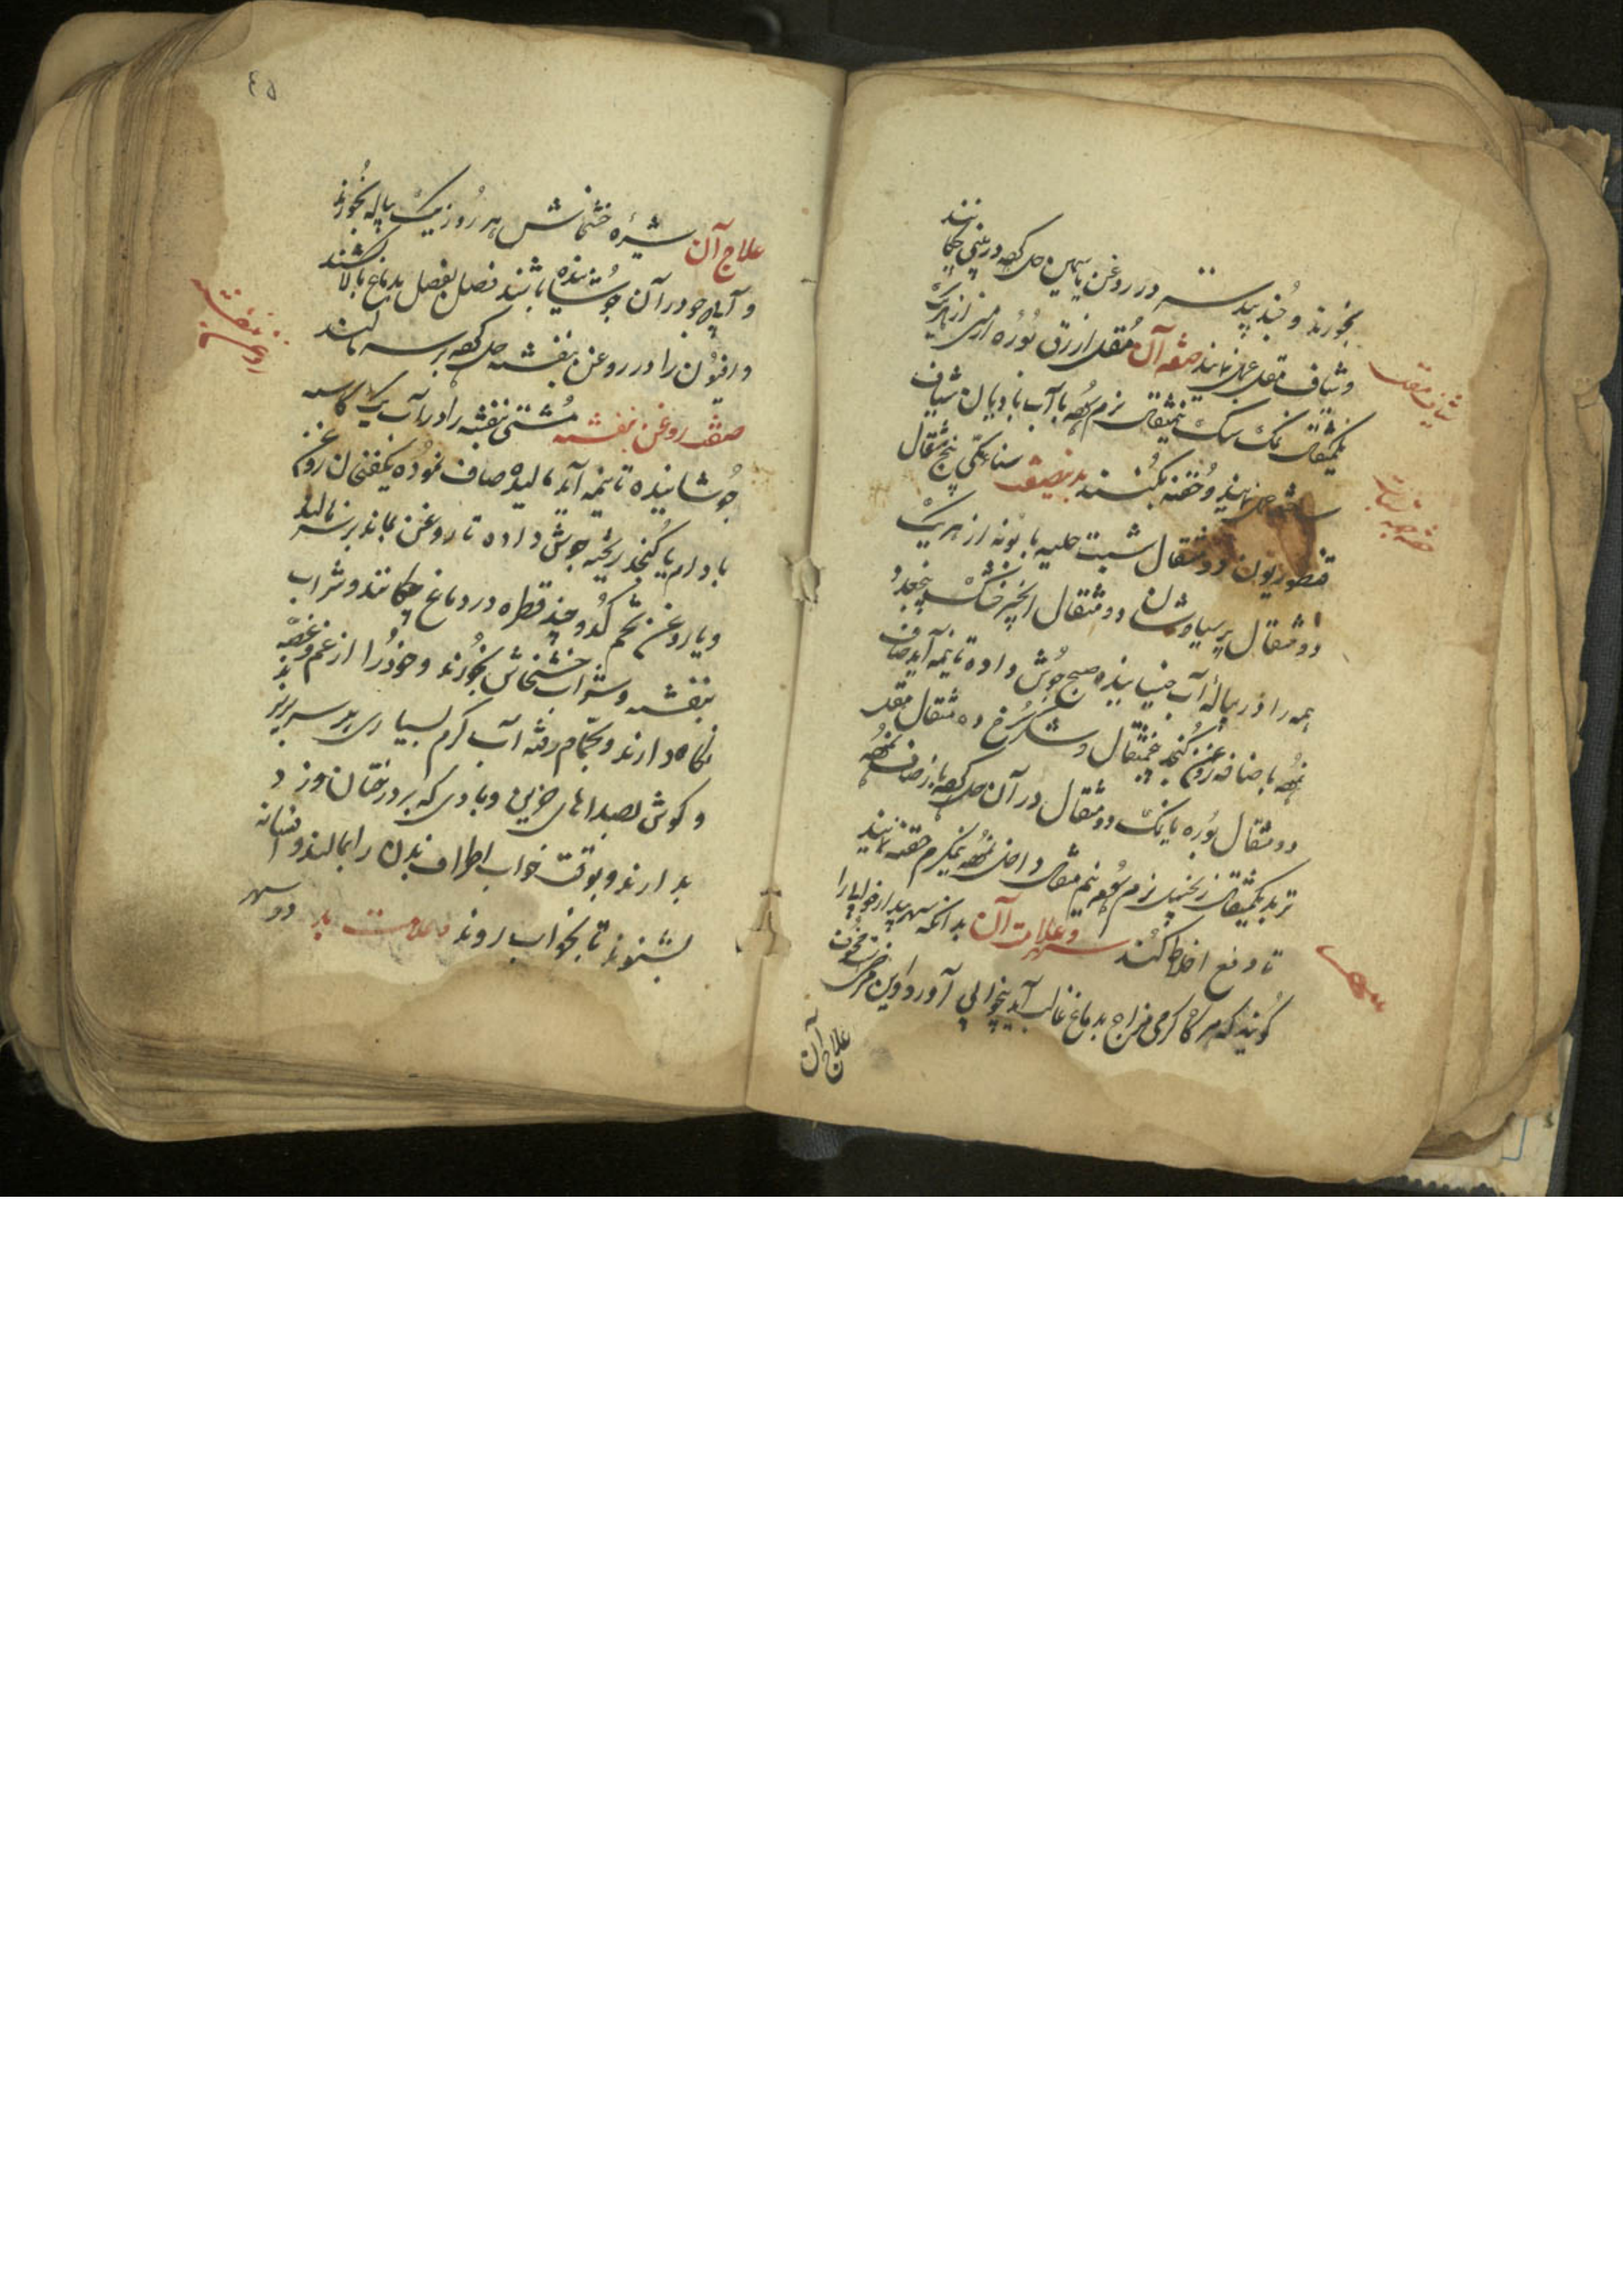 بخورند و جندبیدستر در روغن یاسمین حل کرده در بینی چکانند
و شیاف مقل عمل نمایند صفه آن مقل ازرق بوره ارمنی از هر یک
یکمثقال نمک سنگ نیمثقال نرم سوده با آب بادیان شیاف
ساخته عمل نمایند و حقنه بکنند بدینصفت سنا مکی پنج مثقال
قنطوریون دو مثقال شبت حلبه بابونه از هر یک
دو مثقال پرسیاوشان دو مثقال انجیر خشک پنجعدد
همه را در پیاله آب خیسانیده صبح جوش داده تا نیمه آید صاف
نموده باضافه روغن کنجد پنجمثقال و شکر سرخ ده مثقال مقل
دو مثقال بوره یا نمک دو مثقال در آن حل کرده باز صاف نموده
تربد یکمثقال زنجبیل نرم سوده نیم مثقال داخل نموده نیمگرم حقنه نمایند
تا دفع اخلاط کند سهر و علامت آن بدانکه سهر بیدار خوابی را
گویند که هرگاه گرمی مزاج بدماغ غالب آید بیخوابی آورد و این مرض
علاج آن
شیاف مقل
سهر
٤٥
علاج آن شیره خشخاش هر روز یک پیاله بخورند
و آب جو در آن جوشانیده باشند فصل بفصل بدماغ بالا کشند
و افیون را در روغن بنفشه حل کرده بر سر مالند
صفت روغن بنفشه مشتی بنفشه را در آب یک کاسه
جوشانیده تا نیمه آید مالیده صاف نموده یکفنجان روغن
بادام یا کنجد ریخته جوش داده تا روغن بماند بر سر مالند
و یا روغن تخم کدو چند قطره در دماغ چکانند و شراب
بنفشه و شراب خشخاش بخورند و خود را از غم و غصه
نگاه دارند و بحمام رفته آب گرم بسیاری بر سر بریزند
و گوش بصداهای حزین و بادی که بر درختان وزد
بدارند و بوقت خواب اطراف بدن را بمالند و افسانه
بشنوند تا بخواب روند علامت بد در سهر
روغن بنفشه